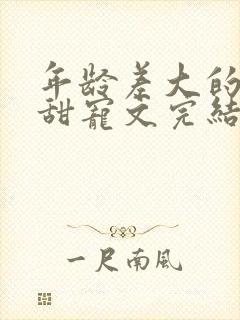 年龄差大的
甜寵文完结
一尺南風